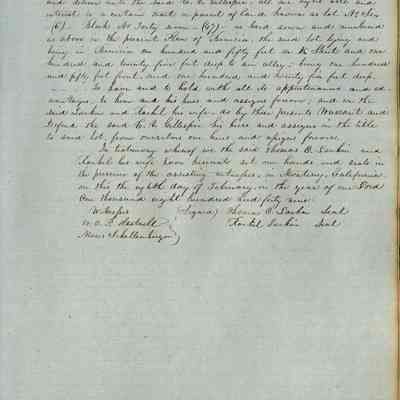 and deliver unto the said C. V. Gillespie, all our right title and
interest to a certain tract or parcel of Land known as lot No Six
(6) Block No Forty seven (47) as laid down and numbered
as above in the present Plan of Benicia, the said lot lying and
being in Benicia one hundred and fifty feet on K Street and one
hundred and twenty five feet deep to an alley; being one hundred
and fifty feet front, and one hundred and twenty five feet deep.
To have and to hold with all its appurtenances and ad-
vantages, to him and his heirs and assigns forever; and we the
said Larkin and Rachel his wife, do by these presents Warrant and
Defend the said C. V. Gillespie his heirs and assigns in the title
to said lot, from ourselves our heirs and assigns forever.
In testimony whereof we the said Thomas O. Larkin and
Rachel his wife have hereunto set our hands and seals in
the presence of the assisting witnesses, in Monterey, California
on this the eighth day of February, in the year of our Lord
One thousand eight hundred and forty nine.
Witnesses (Signed) Thomas O. Larkin Seal
W. A. P. Rachel Larkin Seal
Moses Schallenberger